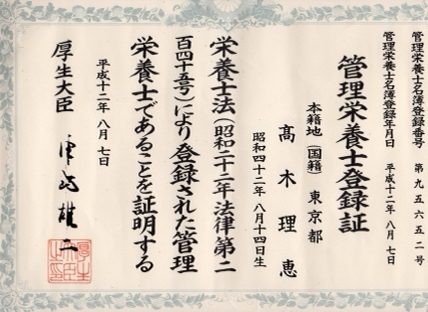 管理栄養士名簿登録番号　第九五六五二号
管理栄養士名簿登録年月日　平成十二年八月七日
管理栄養士登録証
本籍地（国籍）東京都
髙木理恵
昭和四十二年八月十四日生
栄養士法（昭和二十二年法律第二
百四十五号）により登録された管理
栄養士であることを証明する
平成十二年八月七日
厚生大臣　津島雄二